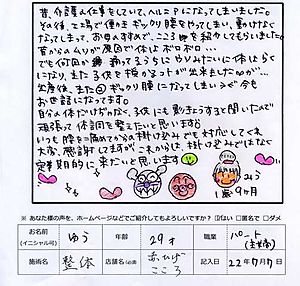 昔、介護の仕事をしていて、ヘルニアになってしまいました。
その後、工場で働きギックリ腰をやってしまい、動けなく
なってしまって、お母さんのすすめで、こころ を紹介してもらいました。
昔からのムリが原因で体はボロボロ…
でも何回か 通ってるうちに ウソみたいに体はらく
になり、また子供を授かる事が出来ましたが…
出産後、また ギックリ腰になってしまい今も
お世話になってます。
自分の体だけでなく、子供にも影響すると聞いたので
頑張って体調を整えたいと思います!
いつも腰を痛めてからの掛け込みでも対応してくれ
本当、感謝してますが、これからは、掛け込みではなく
定期的に来たいと思います
みう
1歳9ヶ月
※ あなた様の声を、ホームページなどでご紹介してもよろしいですか? ない 匿名で ダメ
お名前(イニシャル可) ゆう 年齢 29才 職業 パート(主婦)
施術名 整体 店舗名(必須) 赤ひげこころ 記入日 22年7月7日